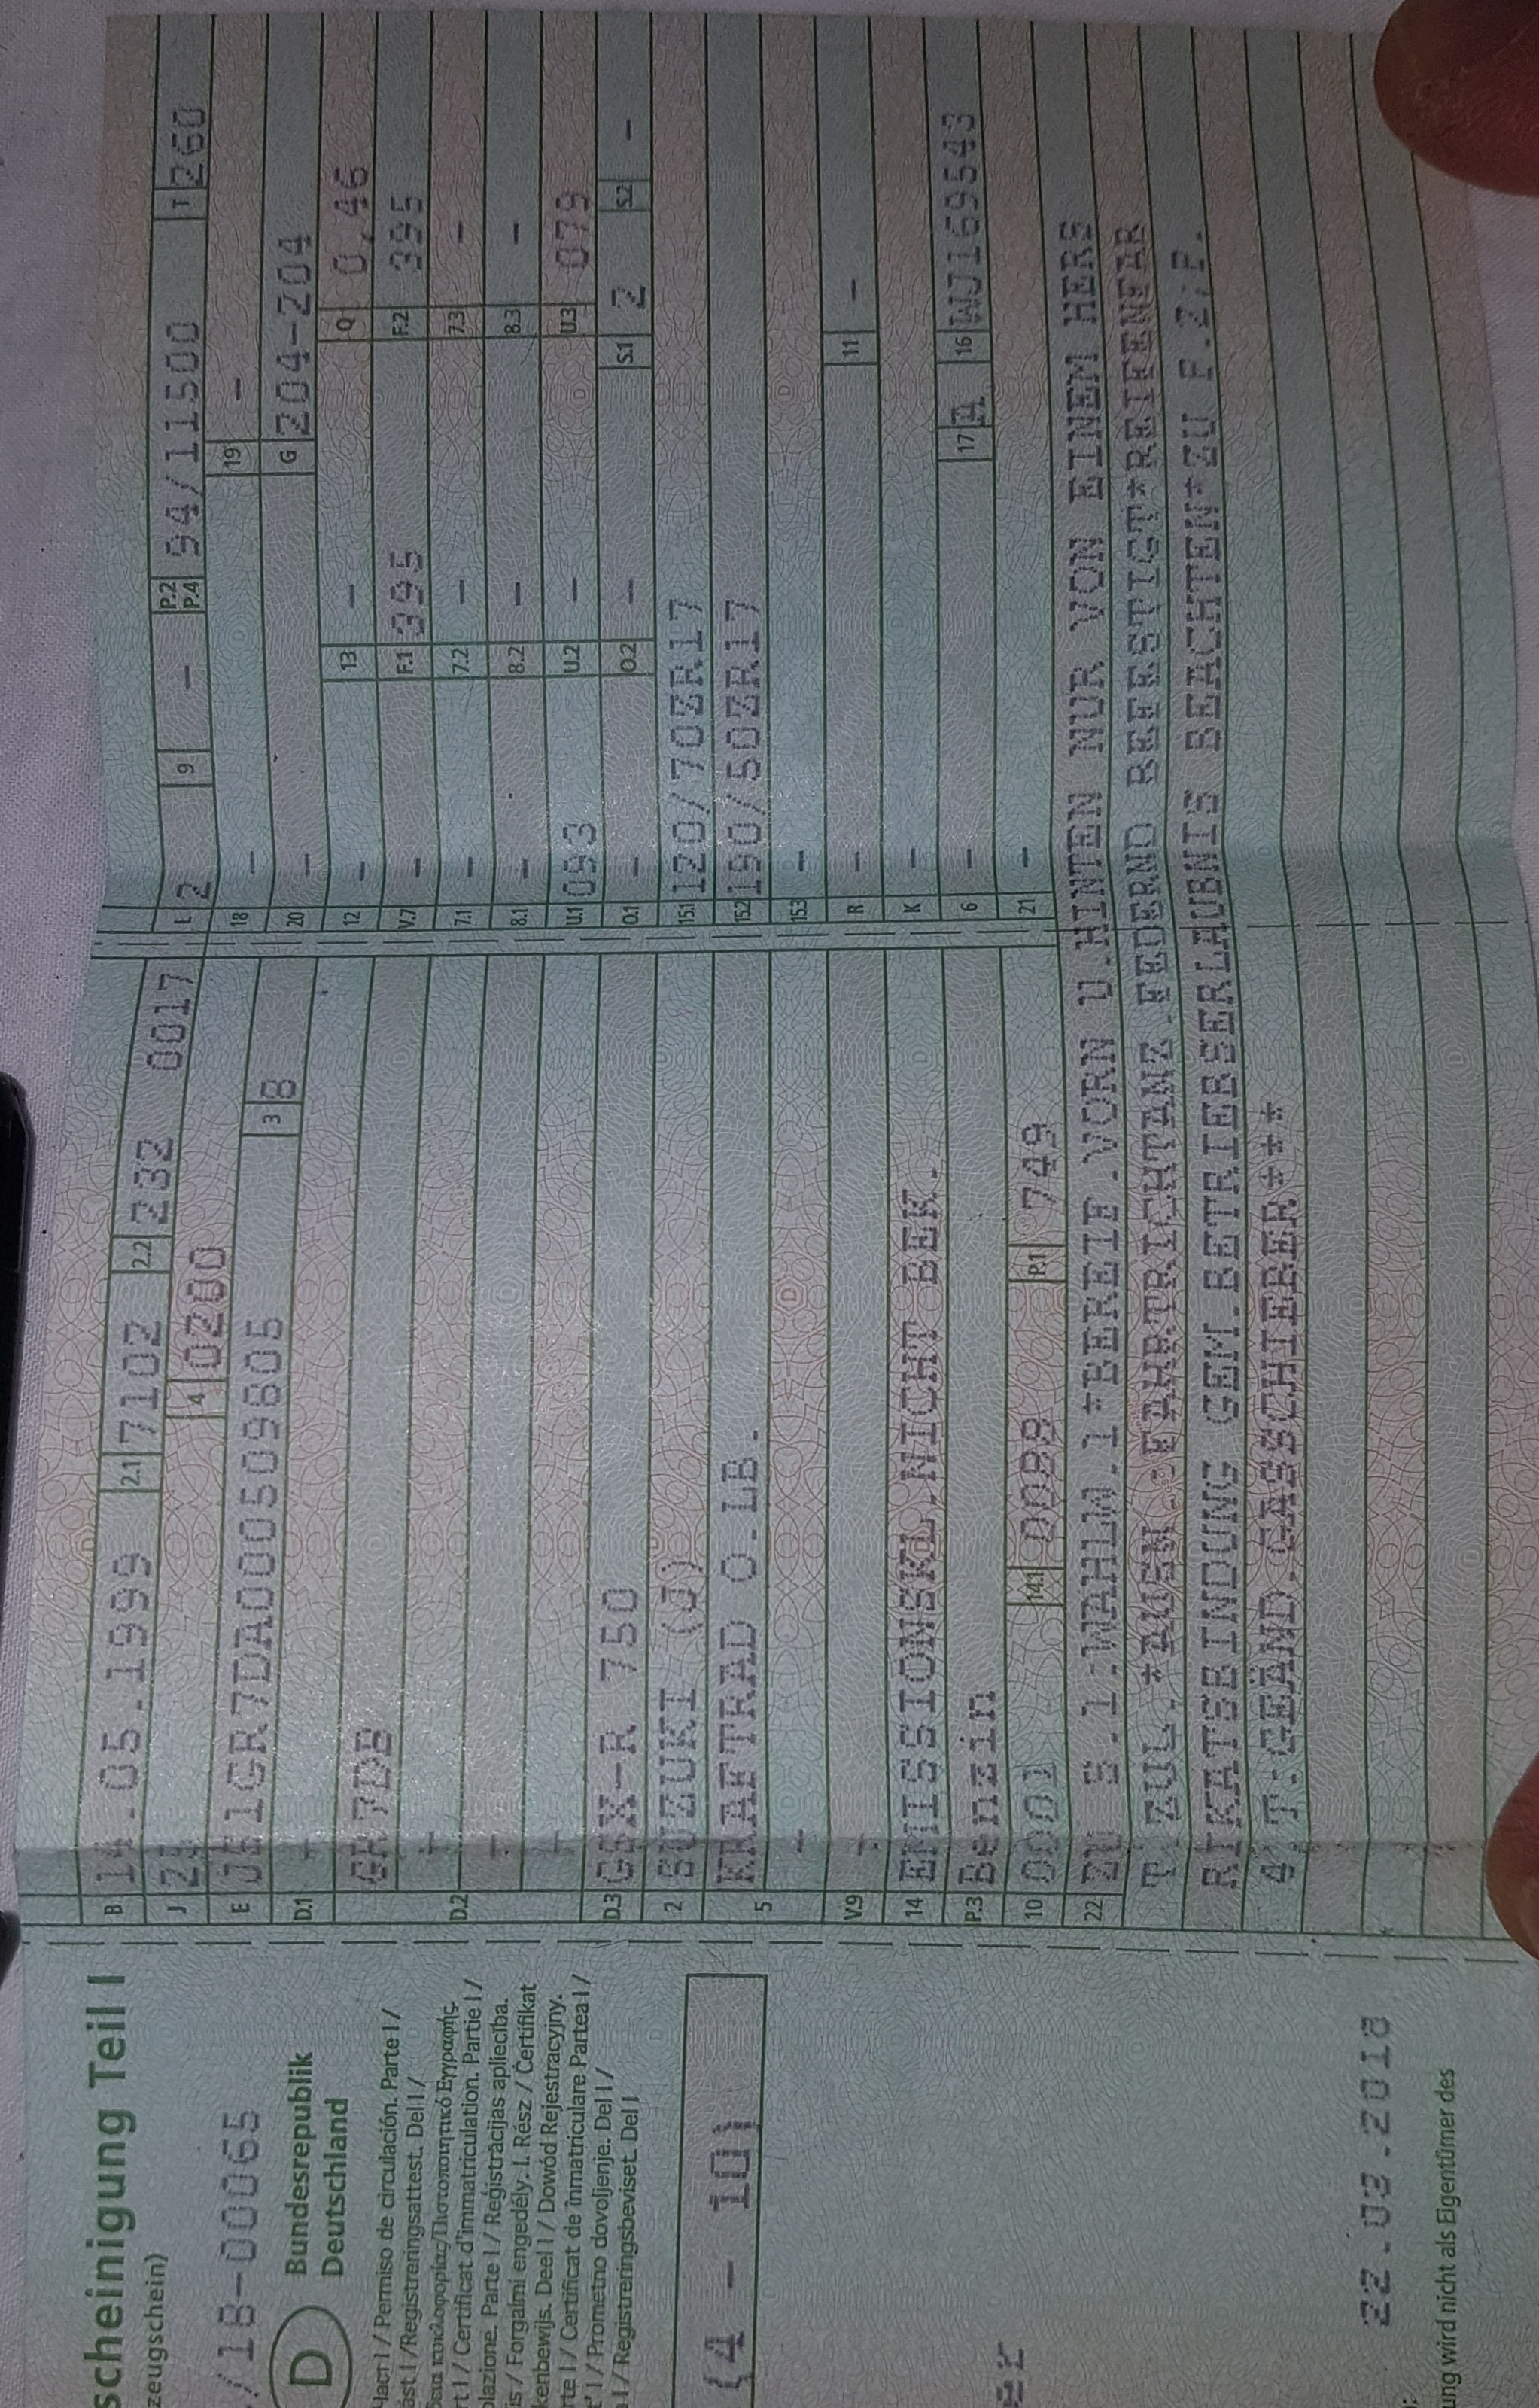 scheinigung Teil I
zeugschein)
/18-00065
D
Bundesrepublik
Deutschland
Част I / Permiso de circulación. Parte I /
ást I /Registreringsattest. Del I /
δεια κυκλοφορίας/Πιστοποιητικό Εγγραφής.
rt I / Certificat d'immatriculation. Partie I /
olazione. Parte I / Reģistrācijas apliecība.
is / Forgalmi engedély. I. Rész / Ċertifikat
kenbewijs. Deel I / Dowód Rejestracyjny.
rte I / Certificat de înmatriculare Partea I /
t' I / Prometno dovoljenje. Del I /
I / Registreringsbeviset. Del I
(4 - 10)
22.03.2018
ung wird nicht als Eigentümer des
B 14.05.1999 2.1 7102 2.2 232 0017
J 24 4 0200
E JS1GR7DA000509805 3 8
D.1 -
D.2 GR7DB
-
-
-
D.3 GSX-R 750
2 SUZUKI (J)
5 KRAFTRAD O.LB.
-
V.9 -
14 EMISSIONSKL.NICHT BEK.
P.3 Benzin
10 0001 14.1 0088 P.1 749
L 2 9 - P.2 P.4 94/11500 T 260
18 - 19 -
20 - G 204-204
12 - 13 - Q 0,46
V.7 - F.1 395 F.2 395
7.1 - 7.2 - 7.3 -
8.1 - 8.2 - 8.3 -
U.1 093 U.2 - U.3 079
O.1 - O.2 - S.1 2 S.2 -
15.1 120/70ZR17
15.2 190/50ZR17
15.3 -
R - 11 -
K -
6 - 17 A 16 WJ169543
21 -
22 ZU S.1:WAHLW.1*BEREIF.VORN U.HINTEN NUR VON EINEM HERS
T ZUL.*AUSW.FAHRTRICHTANZ.FEDERND BEFESTIGT*REIFENFAB
RIKATSBINDUNG GEM.BETRIEBSERLAUBNIS BEACHTEN*ZU F.Z:P.
4 T:GEÄND.GASSCHIEBER***